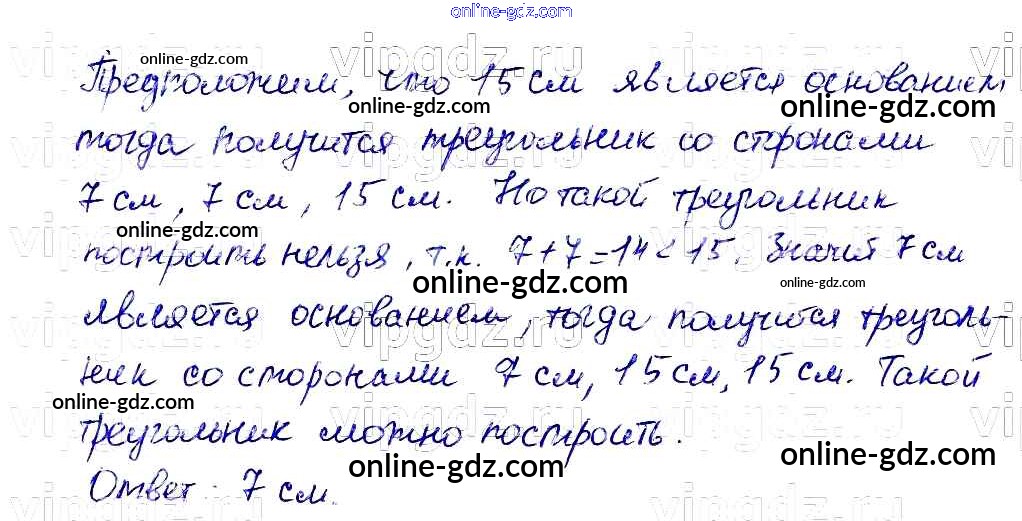 online-gdz.com
vipgdz.ru vipgdz.ru vipgdz.ru
online-gdz.com
Предположим, что 15 см является основанием
online-gdz.com online-gdz.com
тогда получится треугольник со сторонами
online-gdz.com
7 см, 7 см, 15 см. Но такой треугольник
online-gdz.com
построить нельзя, т.к. 7+7=14<15. Значит 7 см
online-gdz.com online-gdz.com
является основанием, тогда получится треуголь-
online-gdz.com
ник со сторонами 7 см, 15 см, 15 см. Такой
online-gdz.com
треугольник можно построить.
online-gdz.com online-gdz.com
Ответ: 7 см.
online-gdz.com